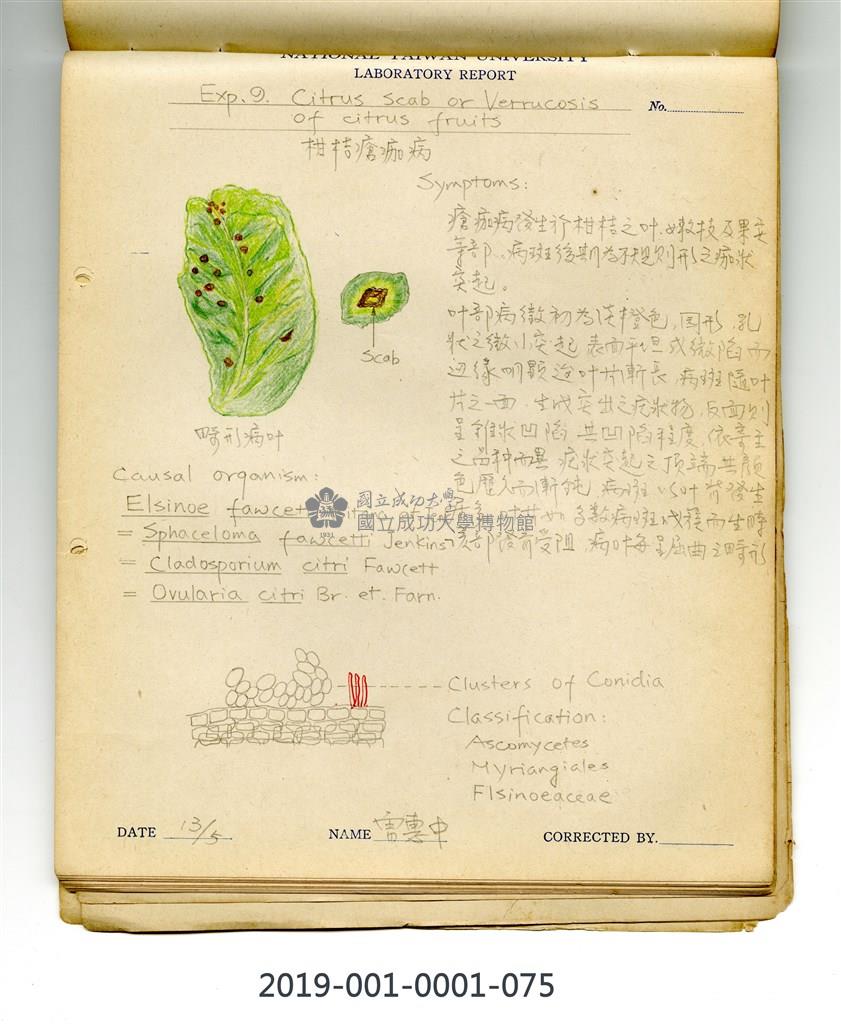 NATIONAL TAIWAN UNIVERSITY
LABORATORY REPORT
Exp. 9. Citrus scab or Verrucosis
of citrus fruits
No.
柑桔瘡痂病
Symptoms:
瘡痂病發生於柑桔之叶,嫩枝及果实
等部,病斑後期為不規則形之痂狀
突起。
叶部病徵初為淡橙色,圓形,乳
狀之微小突起,表面平坦或微陷而
边緣明顯,迨叶片漸長,病斑隨叶
片之一面,生成突出之疣狀物,反面則
呈錐狀凹陷,其凹陷程度,依寄主
之品种而異,疣狀突起之頂端其顏
色歷久而漸鈍,病斑以叶背發生
多數病斑成簇而生時
部發育受阻,病叶每呈屈曲之畸形
Scab
畸形病叶
Causal organism:
Elsinoe fawcetti
= Sphaceloma fawcetti Jenkins
= Cladosporium citri Fawcett
= Ovularia citri Br. et. Farn.
國立成功大學
國立成功大學博物館
1931
Clusters of Conidia
Classification:
Ascomycetes
Myriangiales
Elsinoeaceae
DATE 13/5
NAME 雷惠中
CORRECTED BY.
2019-001-0001-075